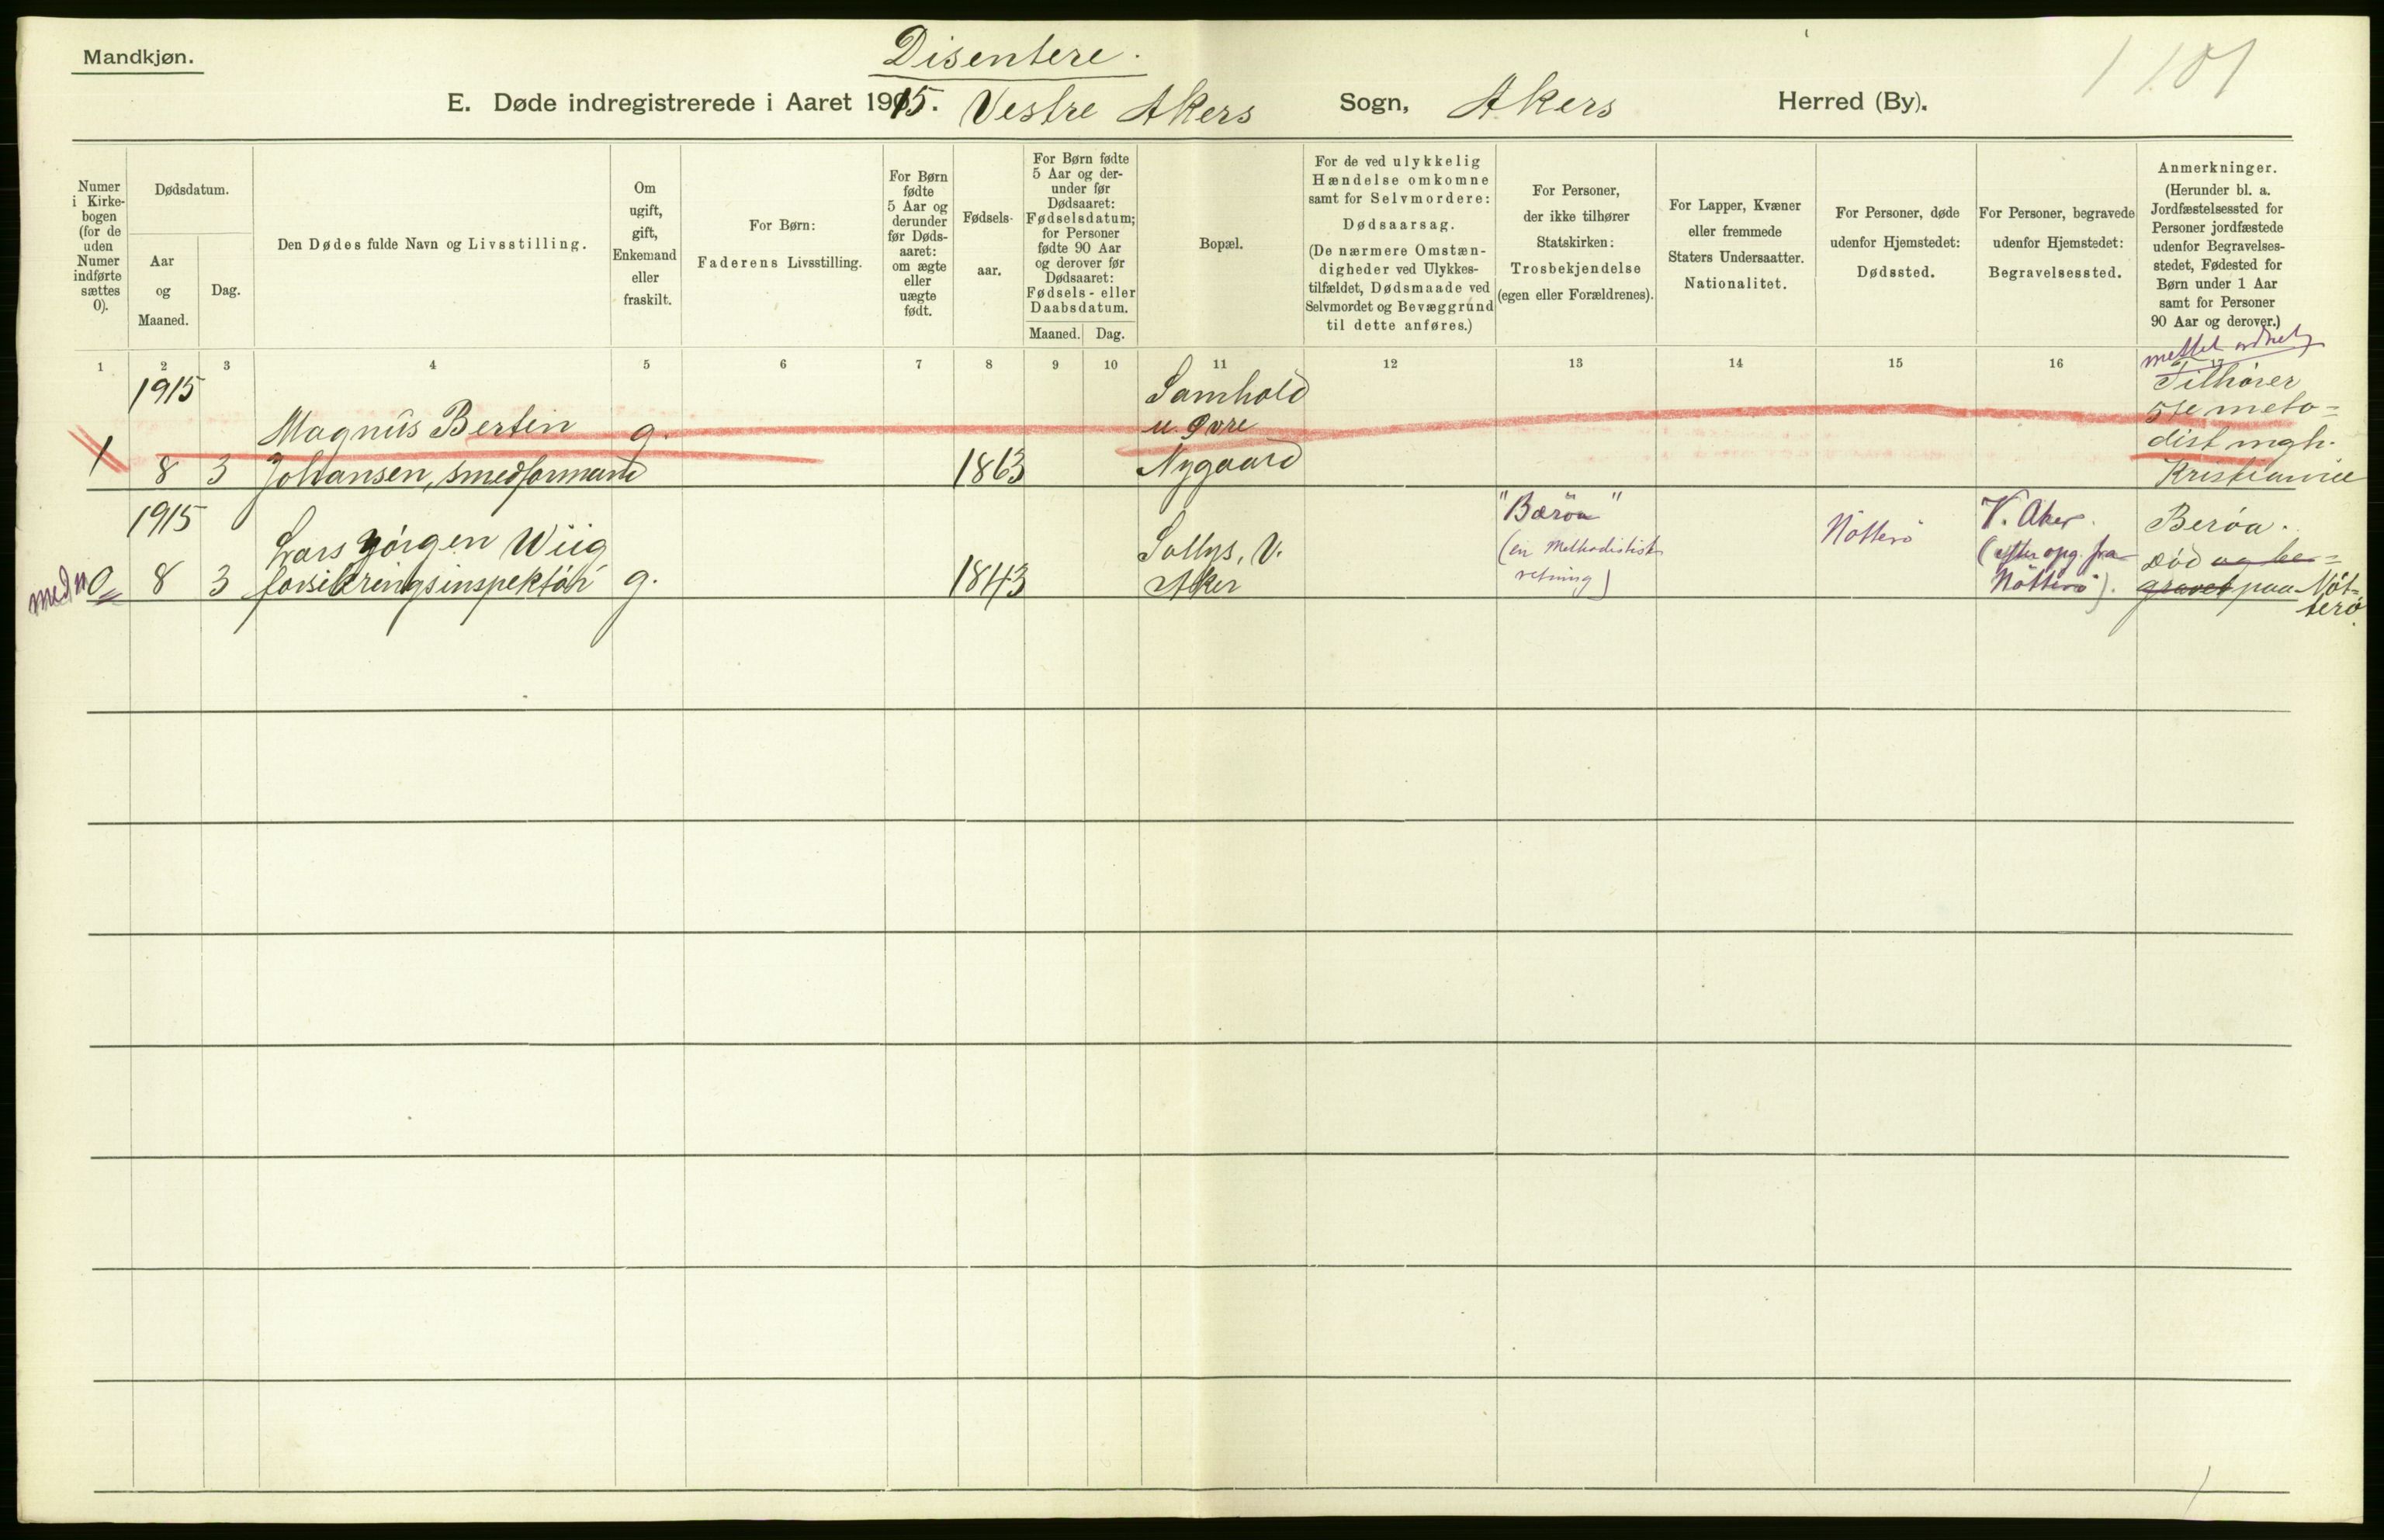 Mandkjøn.
Disentere.
E. Døde indregistrerede i Aaret 1915. Vestre Akers Sogn, Akers Herred (By).
1 101
Numer
i Kirke-
bogen
(for de
uden
Numer
indførte
sættes
0).
Dødsdatum.
Aar
og
Maaned.
Dag.
Den Dødes fulde Navn og Livsstilling.
Om
ugift,
gift,
Enkemand
eller
fraskilt.
For Børn:
Faderens Livsstilling.
For Børn
fødte
5 Aar og
derunder
før Døds-
aaret:
om ægte
eller
uægte
født.
Fødsels-
aar.
For Børn fødte
5 Aar og der-
under før
Dødsaaret:
Fødselsdatum;
for Personer
fødte 90 Aar
og derover før
Dødsaaret:
Fødsels- eller
Daabsdatum.
Maaned. Dag.
Bopæl.
For de ved ulykkelig
Hændelse omkomne
samt for Selvmordere:
Dødsaarsag.
(De nærmere Omstæn-
digheder ved Ulykkes-
tilfældet, Dødsmaade ved
Selvmordet og Bevæggrund
til dette anføres.)
For Personer,
der ikke tilhører
Statskirken:
Trosbekjendelse
(egen eller Forældrenes).
For Lapper, Kvæner
eller fremmede
Staters Undersaatter.
Nationalitet.
For Personer, døde
udenfor Hjemstedet:
Dødssted.
For Personer, begravede
udenfor Hjemstedet:
Begravelsessted.
Anmerkninger.
(Herunder bl. a.
Jordfæstelsessted for
Personer jordfæstede
udenfor Begravelses-
stedet, Fødested for
Børn under 1 Aar
samt for Personer
90 Aar og derover.)
1 2 3 4 5 6 7 8 9 10 11 12 13 14 15 16 17
1915
1 8 3
Magnus Bertin
Johansen, smedformand
g.
1863
Samhold
u. Øvre
Nygaard
Tilhører
5te meto=
dist mgh.
Kristiania
1915
0 8 3
Lars Jörgen Wiig
forsikringsinspektör
g.
1843
Sollys, V.
Aker
"Bæröa"
(en Methodistisk
retning)
Nötterö
V. Aker.
(efter opg. fra
Nötterö).
Beröa.
Död og be=
gravet paa Nöt=
terö.